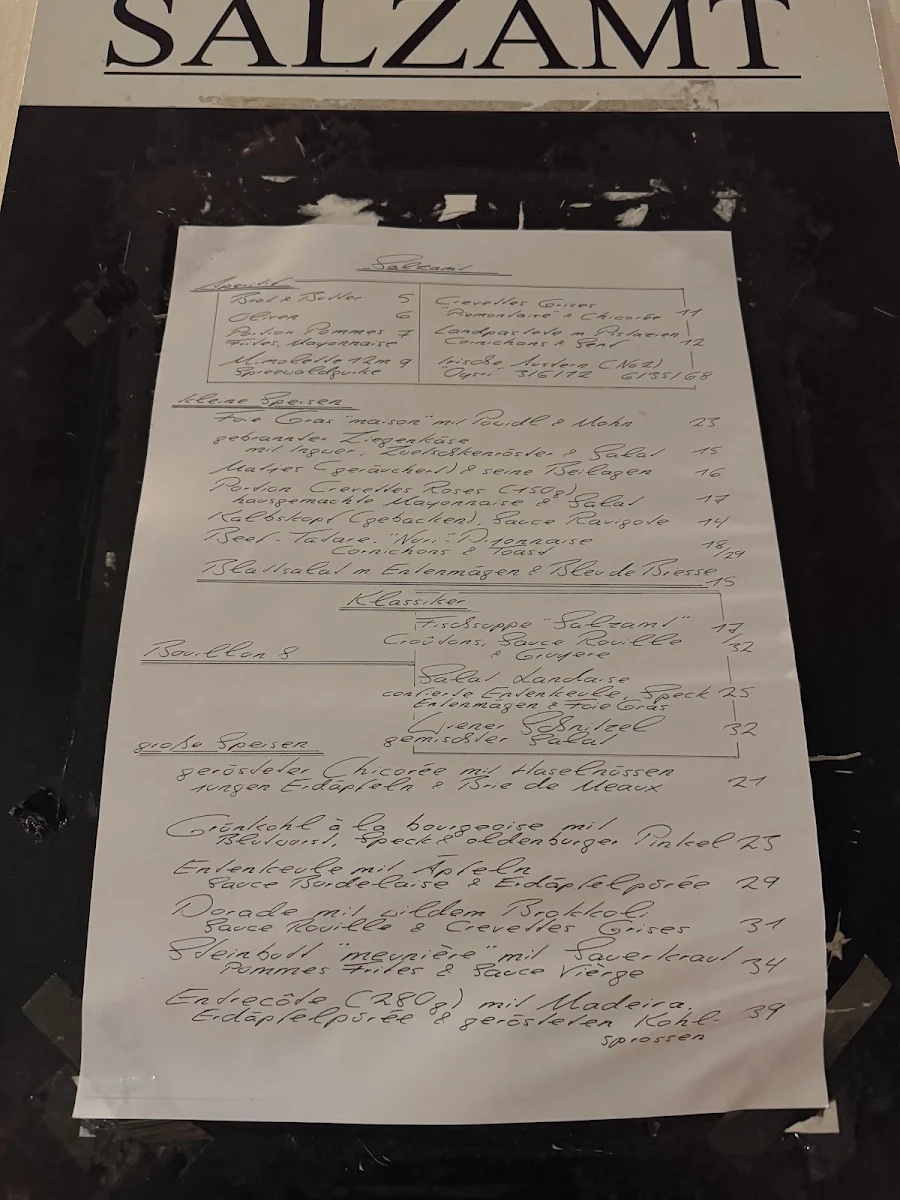 SALZAMT
Salzamt
Aperitif
Brot & Butter 5
Oliven 6
Portion Pommes 7
Frites, Mayonnaise
Mimolette 12m 9
Spreewaldgurke
Crevettes Grises
"Piemontaise" & Chicorée 11
Landpastete m. Pistazien
Cornichons & Senf 12
Irische Austern (No2)
3/6/12 6/35/68
kleine Speisen
Foie Gras "maison" mit Powidl & Mohn 23
gebrannter Ziegenkäse
mit Ingwer, Zwetschkenröster & Salat 15
Matjes (geräuchert) & seine Beilagen 16
Portion Crevettes Roses (150g)
hausgemachte Mayonnaise & Salat 17
Kalbskopf (gebacken), Sauce Ravigote 14
Beef-Tatare, "Nuri"-Dijonnaise
Cornichons & Toast 18/29
Blattsalat m. Entenmägen & Bleu de Bresse
15
Klassiker
Fischsuppe "Salzamt" 17/32
Croûtons, Sauce Rouille
& Gruyere
Bouillon 8
Salat Landaise
confierte Entenkeule, Speck 25
Entenmägen & Foie Gras
Wiener Schnitzel 32
gemischter Salat
große Speisen
gerösteter Chicorée mit Haselnüssen
jungen Erdäpfeln & Brie de Meaux 21
Grünkohl à la bourgeoise mit
Blutwurst, Speck & oldenburger Pinkel 23
Entenkeule mit Äpfeln
Sauce Bordelaise & Erdäpfelpürée 29
Dorade mit wildem Brokkoli
Sauce Rouille & Crevettes Grises 31
Steinbutt "meunière" mit Sauerkraut
Pommes Frites & Sauce Vièrge 34
Entrecôte (280g) mit Madeira,
Erdäpfelpürée & gerösteten Kohl- 39
sprossen